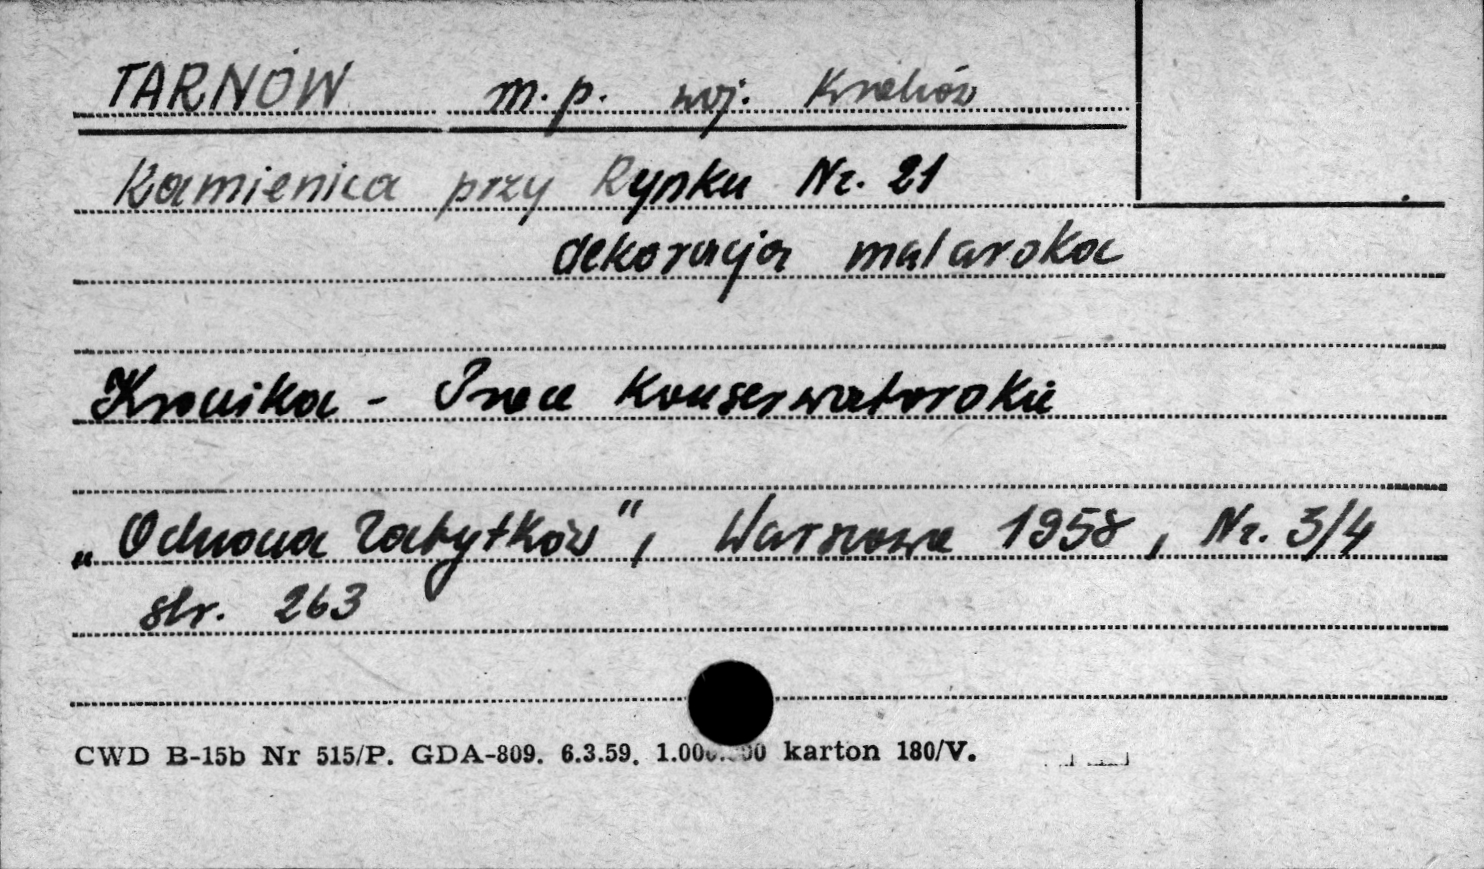 TARNÓW m.p. woj. Kraków
Kamienica przy Rynku Nr. 21
dekoracja malarska
Kronika - Prace Konserwatorskie
„Ochrona Zabytków", Warszawa 1958, Nr. 3/4
str. 263
CWD B-15b Nr 515/P. GDA-809. 6.3.59. 1.000.000 karton 180/V.